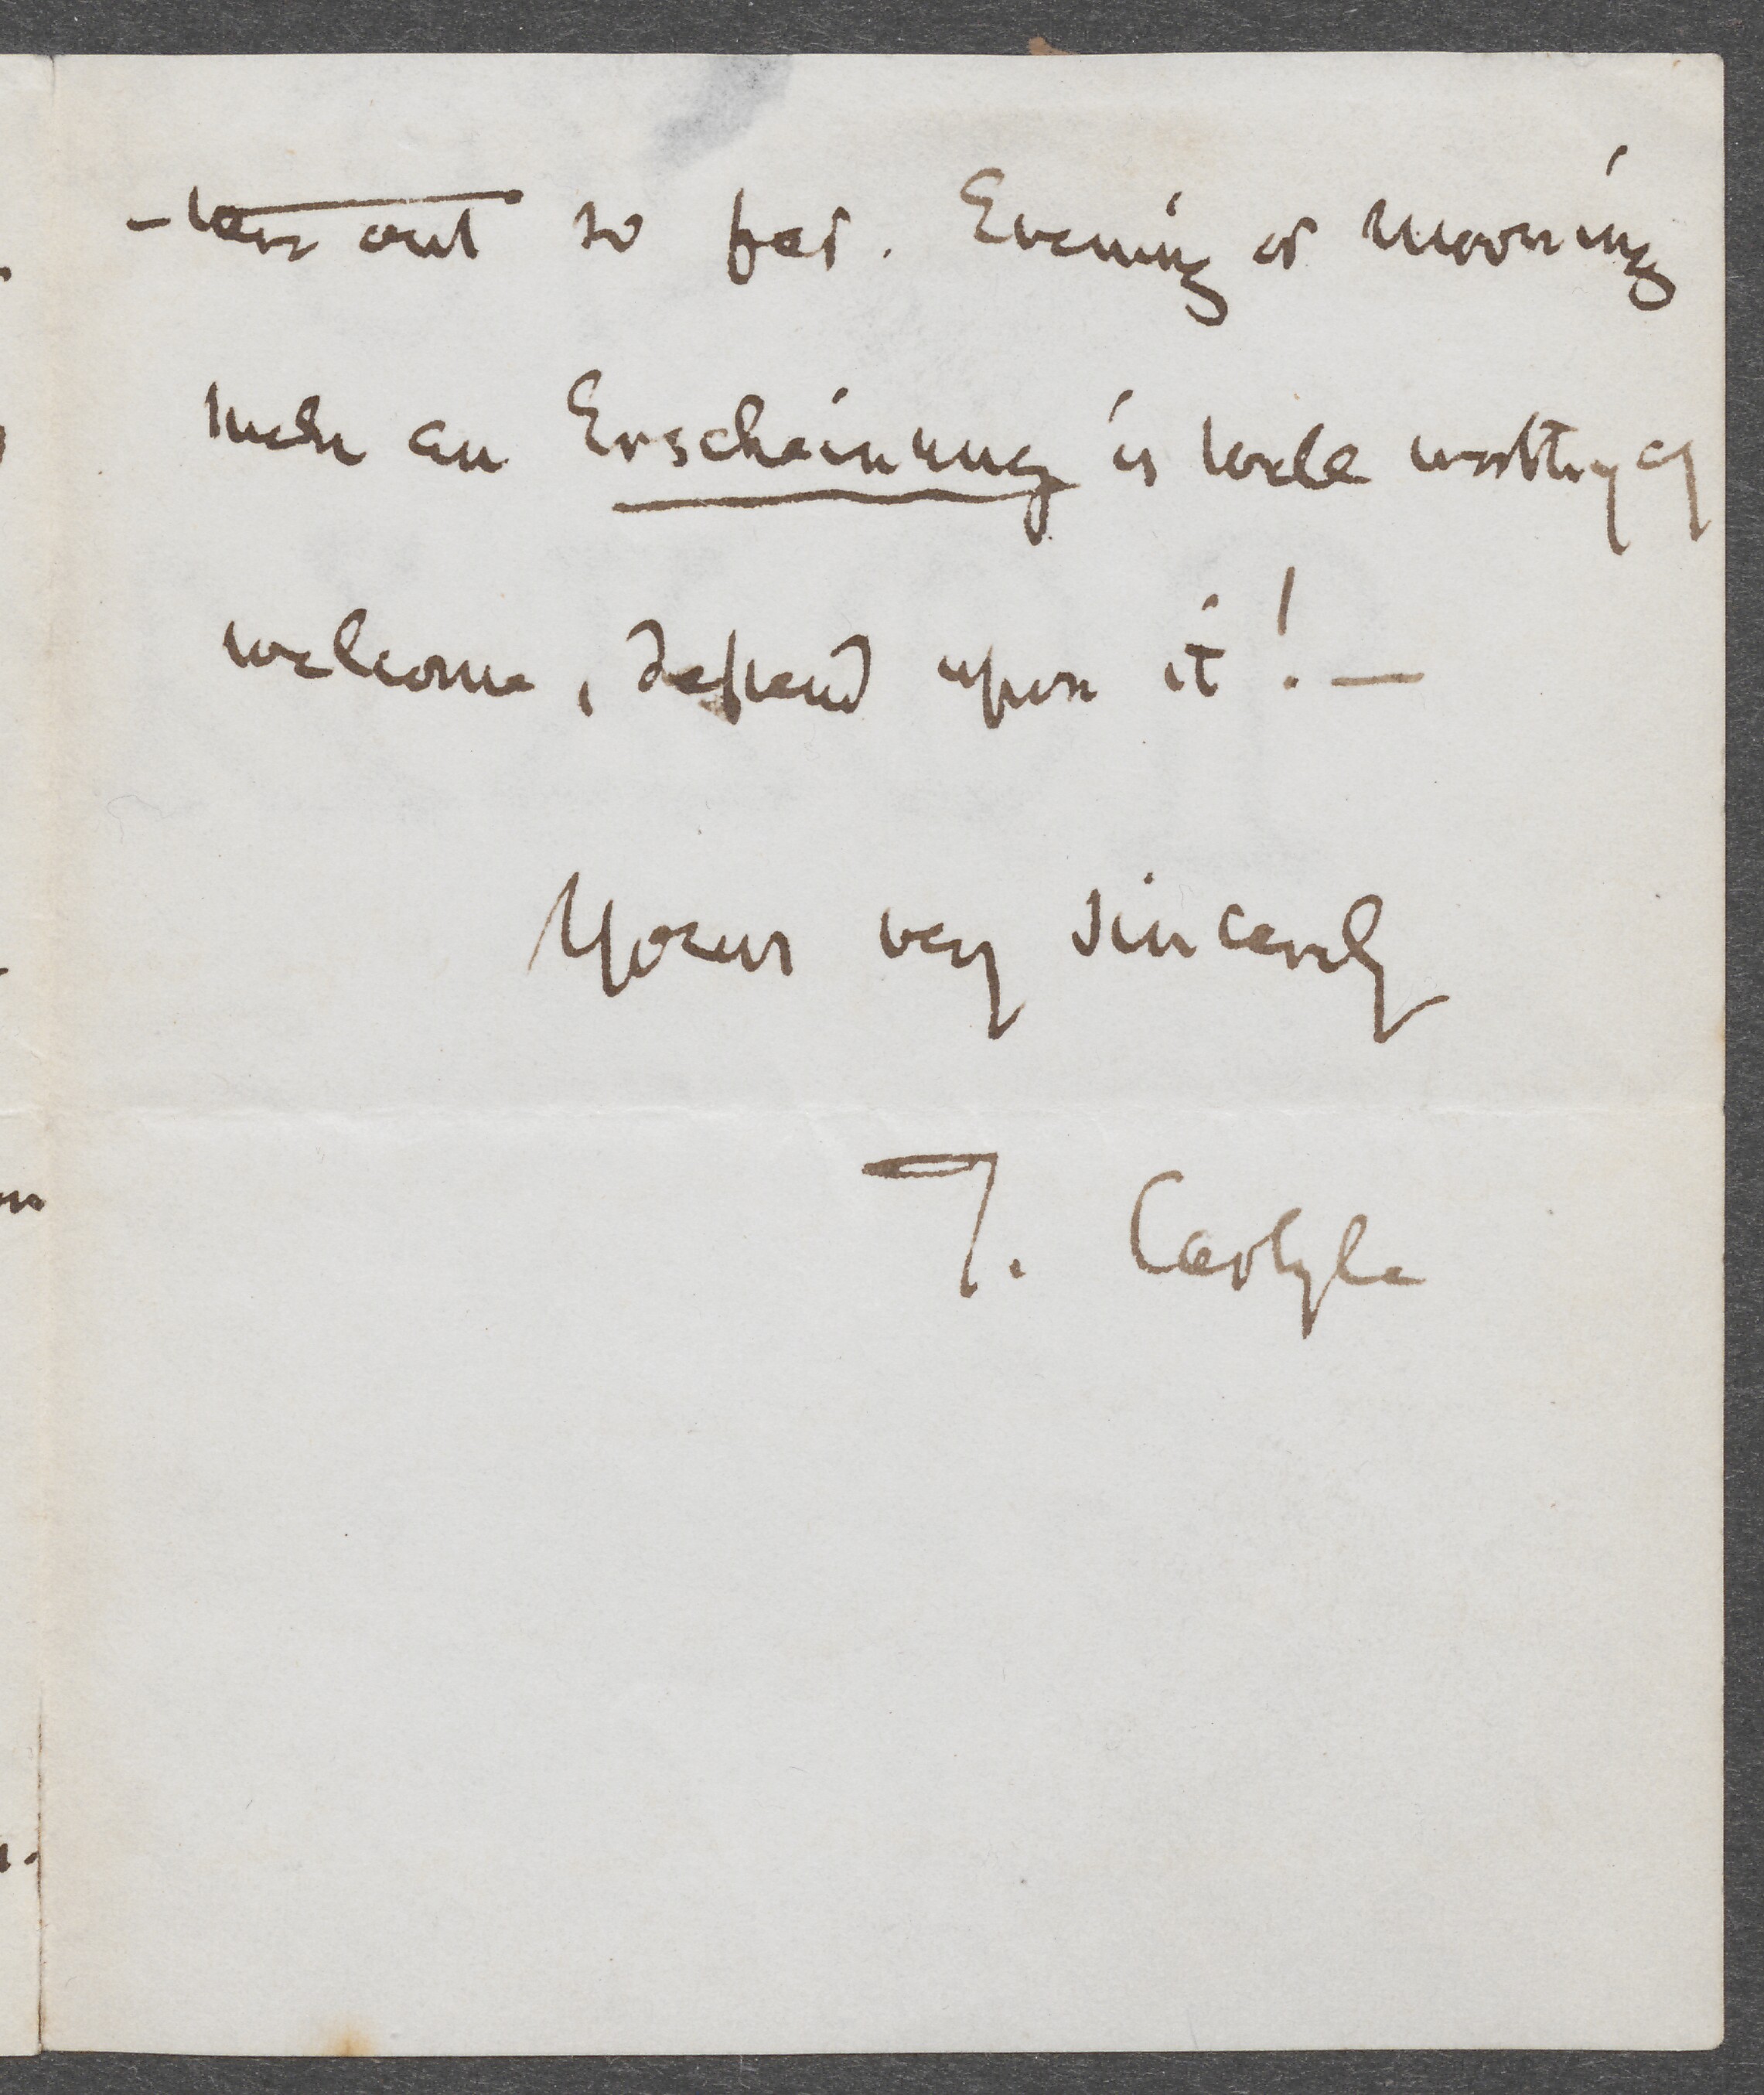 -ture out so far. Evening or Morning
such an Erscheinung is well worthy of
welcome, depend upon it! —
Yours very sincerely
T. Carlyle